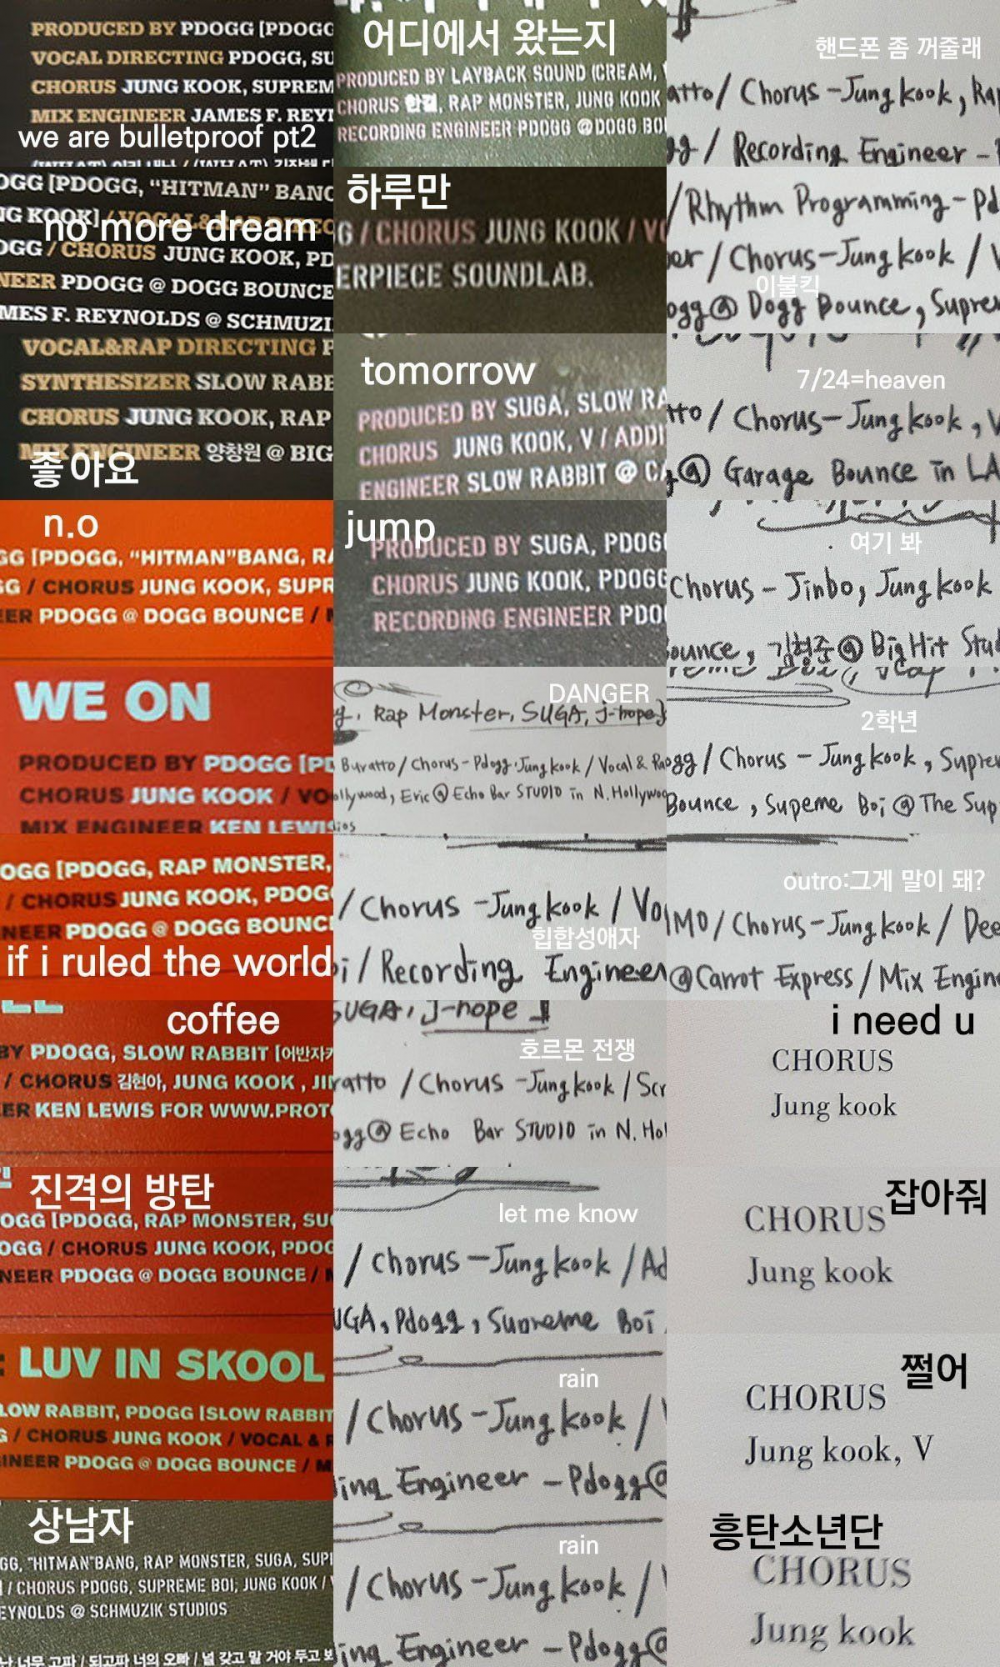 PRODUCED BY PDOGG [PDOGG
VOCAL DIRECTING PDOGG, SU
CHORUS JUNG KOOK, SUPREM
MIX ENGINEER JAMES F. REY
we are bulletproof pt2
OGG [PDOGG, "HITMAN" BANG
NG KOOK] / VOCAL & RAP DIREC
no more dream
OGG / CHORUS JUNG KOOK, PD
NEER PDOGG @ DOGG BOUNCE
MES F. REYNOLDS @ SCHMUZI
VOCAL&RAP DIRECTING P
SYNTHESIZER SLOW RABB
CHORUS JUNG KOOK, RAP
MIX ENGINEER 양창원 @ BIG
좋아요
n.o
GG [PDOGG, "HITMAN"BANG, RA
GG / CHORUS JUNG KOOK, SUPR
EER PDOGG @ DOGG BOUNCE /
WE ON
PRODUCED BY PDOGG [PD
CHORUS JUNG KOOK / VO
MIX ENGINEER KEN LEWI
OGG [PDOGG, RAP MONSTER,
/ CHORUS JUNG KOOK, PDOG
NEER PDOGG @ DOGG BOUNC
if i ruled the world
coffee
BY PDOGG, SLOW RABBIT [어반자카
/ CHORUS 김현아, JUNG KOOK , JI
ER KEN LEWIS FOR WWW.PROT
진격의 방탄
OGG [PDOGG, RAP MONSTER, SU
OGG / CHORUS JUNG KOOK, PDOG
NEER PDOGG @ DOGG BOUNCE /
: LUV IN SKOOL
LOW RABBIT, PDOGG [SLOW RABBIT
G / CHORUS JUNG KOOK / VOCAL & R
GINEER PDOGG @ DOGG BOUNCE / M
상남자
GG, "HITMAN"BANG, RAP MONSTER, SUGA, SUP
/ CHORUS PDOGG, SUPREME BOI, JUNG KOOK /
EYNOLDS @ SCHMUZIK STUDIOS
난 너무 고파 / 되고파 너의 오빠 / 널 갖고 말 거야 두고 봐
어디에서 왔는지
PRODUCED BY LAYBACK SOUND (CREAM,
CHORUS 한결, RAP MONSTER, JUNG KOOK
RECORDING ENGINEER PDOGG @ DOGG BO
하루만
G / CHORUS JUNG KOOK / VO
ERPIECE SOUNDLAB.
tomorrow
PRODUCED BY SUGA, SLOW RA
CHORUS JUNG KOOK, V / ADDI
ENGINEER SLOW RABBIT @ C
jump
PRODUCED BY SUGA, PDOG
CHORUS JUNG KOOK, PDOGG
RECORDING ENGINEER PDO
DANGER
g, Rap Monster, SUGA, J-hope}
Buratto / Chorus - Pdogg, Jung kook / Vocal & Ra
ollywood, Eric @ Echo Bar STUDIO in N. Hollywoo
dios
/ Chorus - Jung kook / Vo
힙합성애자
i / Recording Engineer
SUGA, J-hope
호르몬 전쟁
ratto / Chorus - Jung kook / Scr
ogg @ Echo Bar STUDIO in N. Hol
let me know
/ Chorus - Jung kook / Ad
UGA, Pdogg, Supreme Boi
rain
/ Chorus - Jung kook /
ing Engineer - Pdogg@
rain
/ Chorus - Jung kook /
ing Engineer - Pdogg@
핸드폰 좀 꺼줄래
atto / Chorus - Jung kook, Ra
gg / Recording Engineer -
/ Rhythm Programming - Pd
er / Chorus - Jung kook /
이불킥
ogg @ Dogg Bounce, Supre
7/24=heaven
tto / Chorus - Jung kook, V
@ Garage Bounce in LA
여기 봐
Chorus - Jinbo, Jung kook
ounce, 김형준 @ BigHit Stud
2학년
ogg / Chorus - Jung kook, Supre
Bounce, Supeme Boi @ The Sup
outro:그게 말이 돼?
IMO / Chorus - Jung kook / Dee
@Carrot Express / Mix Engin
i need u
CHORUS
Jung kook
잡아줘
CHORUS
Jung kook
쩔어
CHORUS
Jung kook, V
흥탄소년단
CHORUS
Jung kook